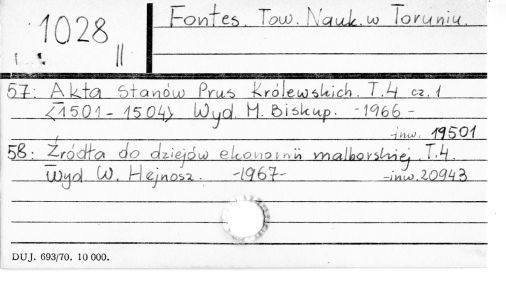 1028
II
Fontes. Tow. Nauk. w Toruniu.
57: Akta Stanów Prus Królewskich. T.4 cz. 1
<1501-1504> Wyd. M. Biskup. -1966-
-inw. 19501
58: Źródła do dziejów ekonomii malborskiej. T.4.
Wyd W. Hejnosz. -1967- -inw. 20943
DUJ. 693/70. 10 000.